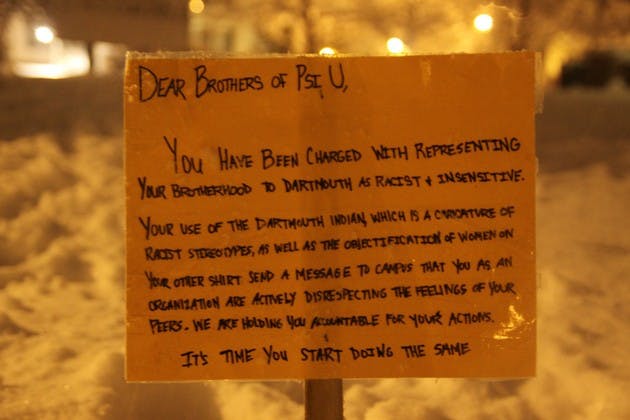 DEAR BROTHERS OF PSI U,
YOU HAVE BEEN CHARGED WITH REPRESENTING
YOUR BROTHERHOOD TO DARTMOUTH AS RACIST + INSENSITIVE.
YOUR USE OF THE DARTMOUTH INDIAN, WHICH IS A CARICATURE OF
RACIST STEREOTYPES, AS WELL AS THE OBJECTIFICATION OF WOMEN ON
YOUR OTHER SHIRT SEND A MESSAGE TO CAMPUS THAT YOU AS AN
ORGANIZATION ARE ACTIVELY DISRESPECTING THE FEELINGS OF YOUR
PEERS. WE ARE HOLDING YOU ACCOUNTABLE FOR YOUR ACTIONS.
IT'S TIME YOU START DOING THE SAME